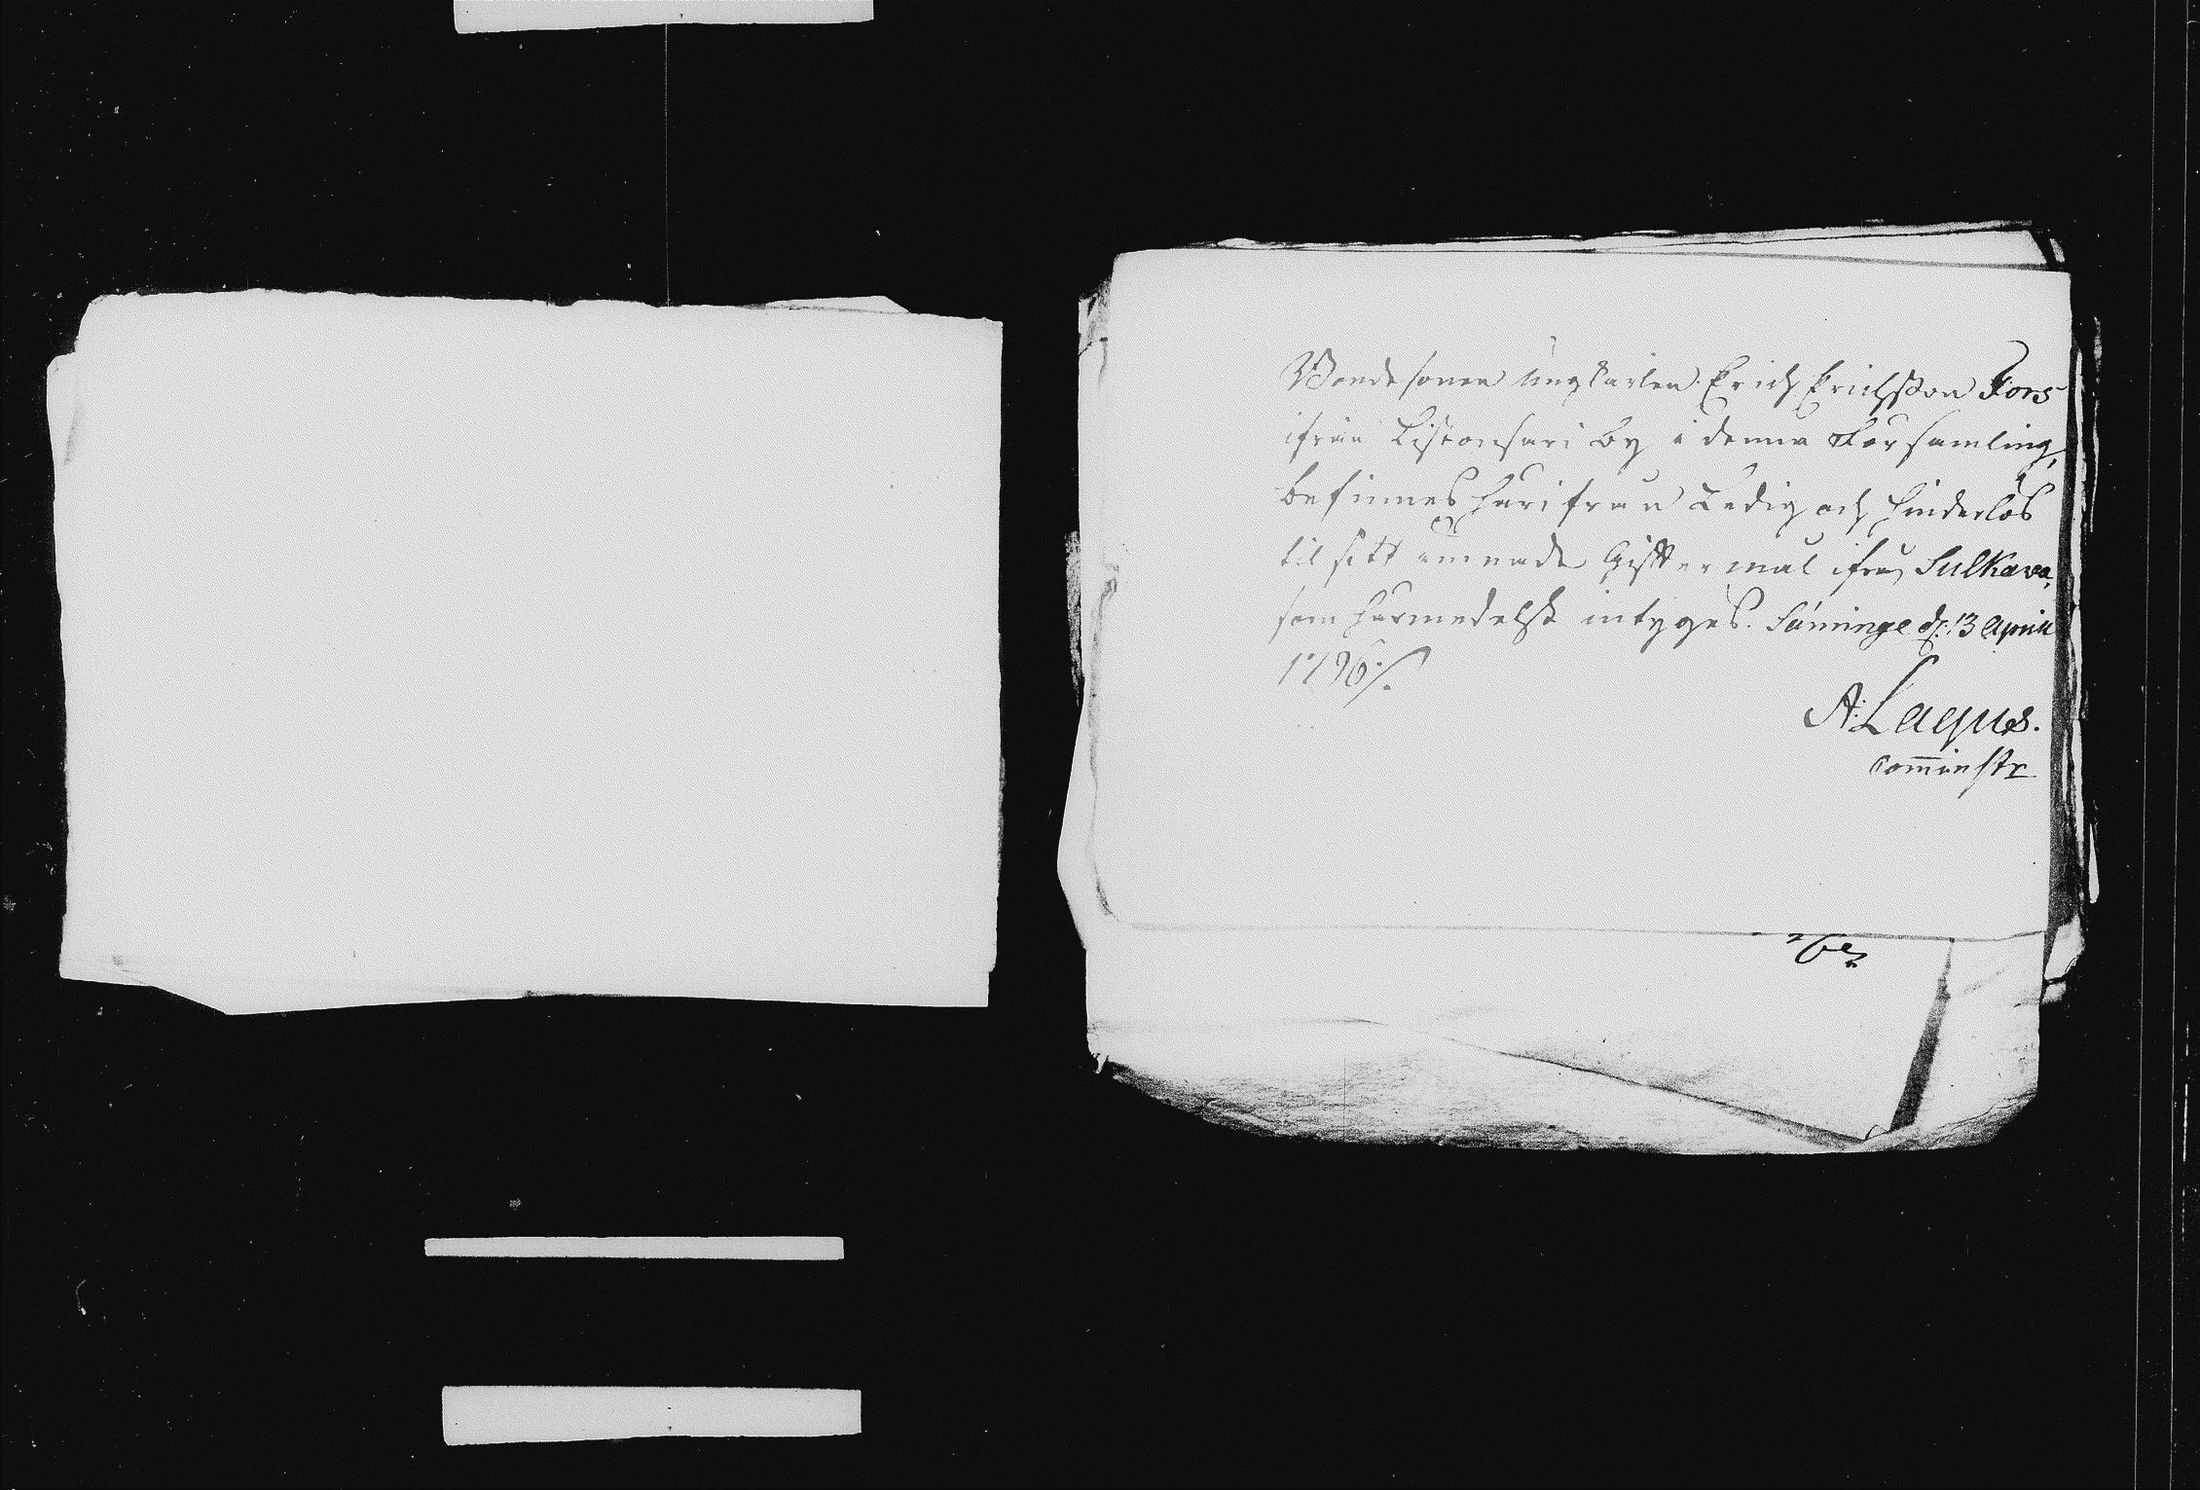 Bondesonen Ungkarlen Erich Erichsson Fors
ifrån Listonsari by i denna Församling,
befinnes härifrån Ledig och hinderlös
til sitt ämnade Giftermål ifrån Sulkava,
som härmedelst intyges. Säminge d: 13 April
1796 ./.
A: Laqus.
Comminstr